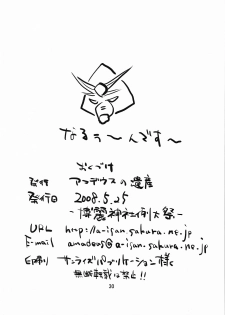 なるぅ～んです～
おくづけ
発行 アマデウスの遺産
発行日 2008.5.25
～博麗神社例大祭～
URL http://a-isan.sakura.ne.jp
E-mail amadeus@a-isan.sakura.ne.jp
印刷 サンライズパブリケーション様
無断転載は禁止!!
30